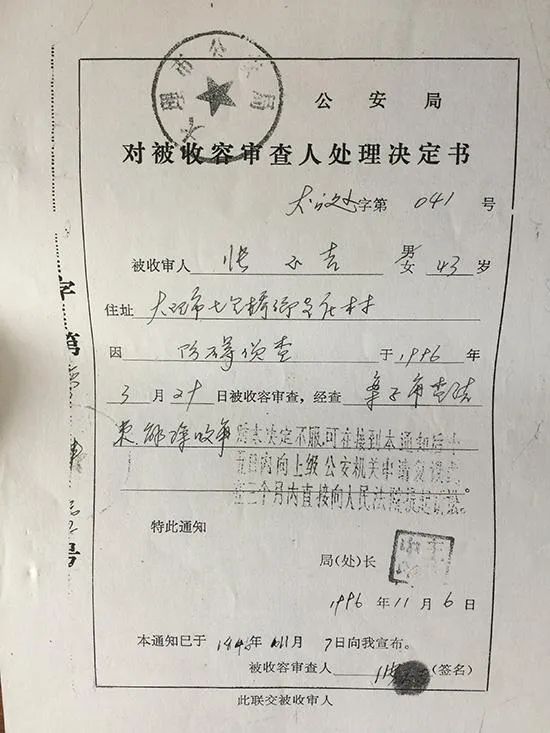 大理市公安局
公安局
对被收容审查人处理决定书
字第 041 号
被收审人 张 吉 男/女 43 岁
住址 大理市七里桥乡 村
因 妨碍侦查 于1996年
3月2 日被收容审查,经查 案子审查结
束,解除收审 对本决定不服,可在接到本通知后十
五日内向上级公安机关申请复议或
在三个月内直接向人民法院提起诉讼。
特此通知
局(处)长
1996年11月6日
本通知已于 年11月7日向我宣布。
被收容审查人 (签名)
此联交被收审人
字第
号